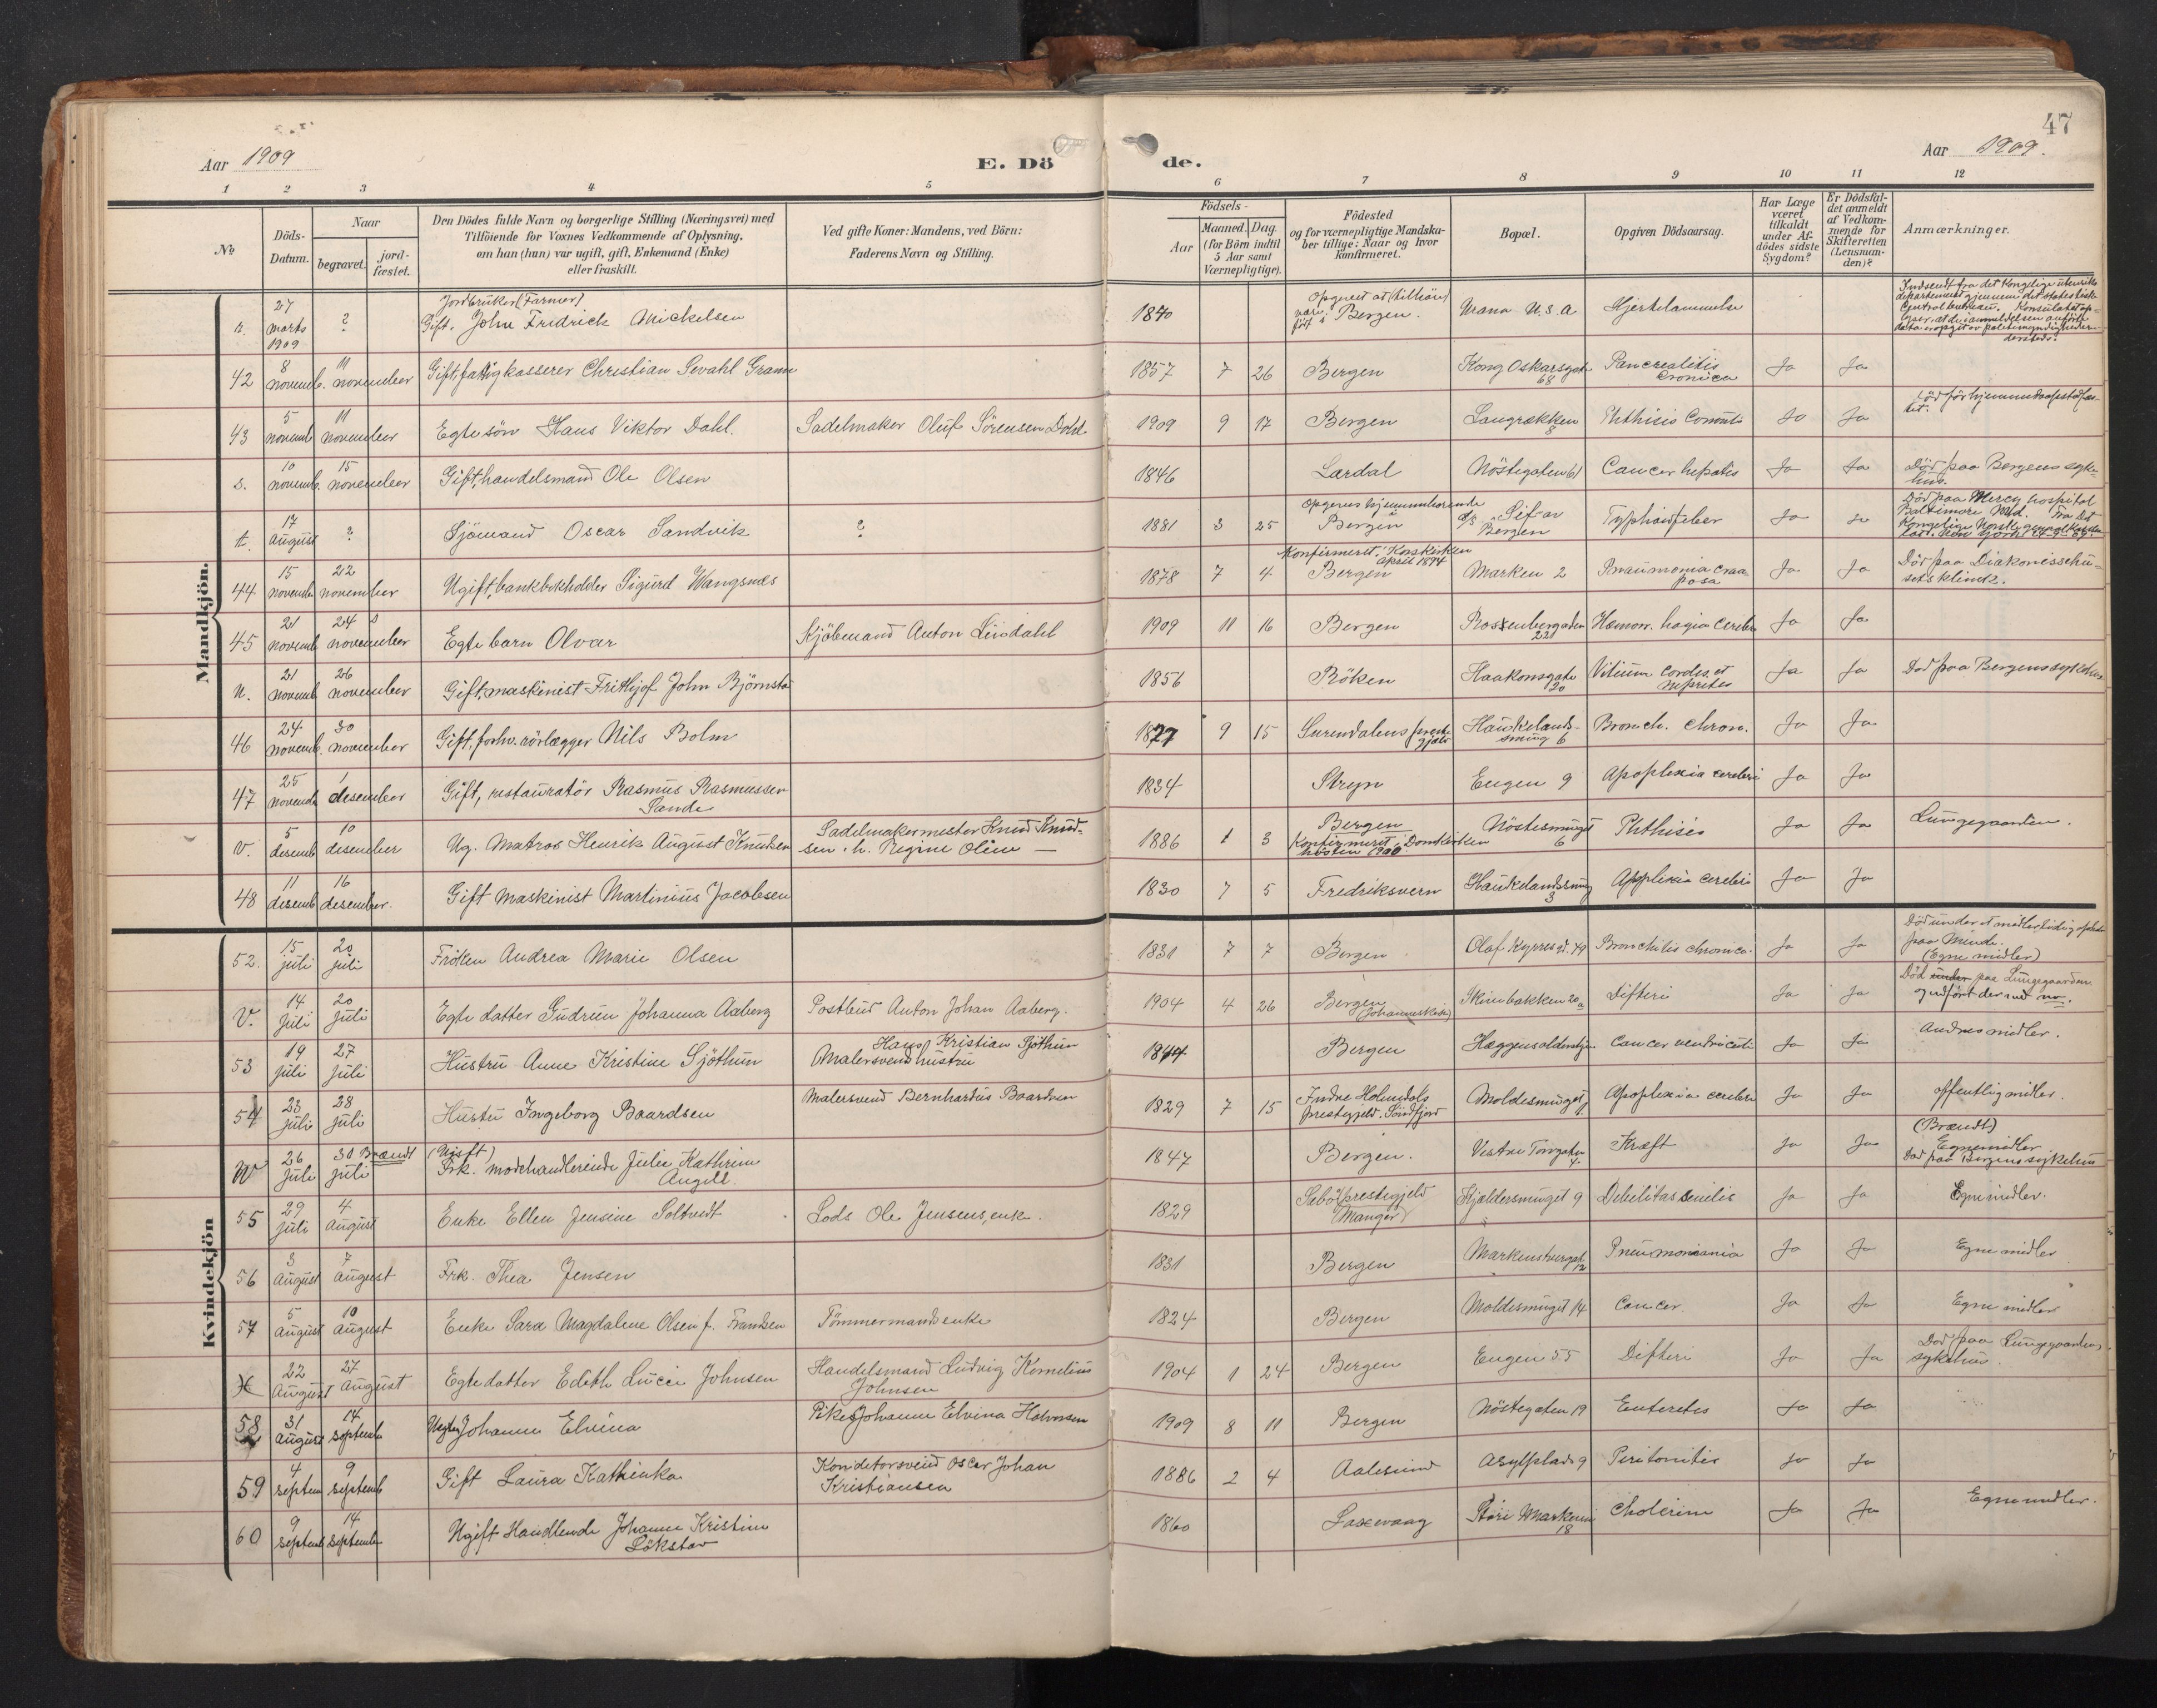 47
Aar 1909
E. Dö
de.
Aar 1909.
1 2 3 4 5 6 7 8 9 10 11 12
No
Döds-
Datum.
Naar
begravet.
jord-
fæstet.
Den Dödes fulde Navn og borgerlige Stilling (Næringsvei) med
Tilföiende for Voxnes Vedkommende af Oplysning,
om han (hun) var ugift, gift, Enkemand (Enke)
eller fraskilt.
Ved gifte Koner: Mandens, ved Börn:
Faderens Navn og Stilling.
Födsels-
Aar
Maaned. Dag.
(for Börn indtil
5 Aar samt
Værnepligtige).
Födested
og for værnepligtige Mandska-
ber tillige: Naar og hvor
konfirmeret.
Bopæl.
Opgiven Dödsaarsag.
Har Læge
været
tilkaldt
under Af-
dödes sidste
Sygdom?
Er Dödsfal-
det anmeldt
af Vedkom-
mende for
Skifteretten
(Lensman-
den)?
Anmærkninger.
Mandkjön.
27 marts 1909 ? Jordbruker (Farmer)
Gift. John Fridrick Mickelsen 1840 Bergen. U.S.A. Hjertelammelse
42 8 novemb. 11 november Gift, fattigkasserer Christian Sevahl Gran 1857 7 26 Bergen Kong Oskarsgate 68 Pancrealitis cronica Ja Ja
43 5 novemb 11 november Egte sön Hans Viktor Dahl. Sadelmaker Oluf Sörensen Dahl 1909 9 17 Bergen Langrækken 8 Phthisis Ja Ja
s. 10 novemb. 15 november Gift, handelsmand Ole Olsen 1846 Lærdal Nöstegaten 61 Cancer hepatis Ja Ja Död paa Bergens syke-
hus.
t. 17 August ? Sjömand Oscar Sandvik ? 1881 3 25 Opgives hjemmehörende i
Bergen Bergen Typhoidfeber Ja Ja Död paa Mercy hospital
Baltimore Md.
44 15 novemb 22 november Ugift, bankbokholder Sigurd Wangsnæs 1878 7 4 Konfirmeret i Korskirken
April 1894
Bergen Marken 2 Pneumonia crou-
posa Ja Ja Död paa Diakonissehu-
sets klinik.
45 21 novemb 24 november Egte barn Olvar Kjöbmand Anton Lindahl 1909 11 16 Bergen Rosenbergaten 22 Hæmorrhagia cerebri Ja Ja
u. 21 novemb 26 november Gift, maskinist Frithjof John Björnstad 1856 Röken Haakonsgate 20 Vitium cordis et
Nephrites Ja Ja Död paa Bergens sykehus
46 24 novemb. 30 november Gift, forhv. rörlægger Nils Bolm 1877 9 15 Surendalens preste-
gjeld Haukelands-
smug 6 Bronch. chron. Ja Ja
47 25 novemb 1 desember Gift, restauratör Rasmus Rasmussen
Sande 1834 Stryn Engen 9 Apoplexia cerebri Ja Ja
V. 5 desemb 10 desember Ug. Matros Henrik August Knutsen Sadelmakermester Knud Knud-
sen. h. Regine Oline 1886 1 3 Bergen
Konfirmeret i Domkirken
hösten 1900 Nöstesmuget 6 Phthisis Ja Ja Lungegaarden.
48 11 desemb 16 desember. Gift Maskinist Martinius Jacobsen 1830 7 5 Fredriksvern Haukelandssmug 3 Apoplexia cerebri Ja Ja
Kvindekjön
52. 15 juli 20 juli Fröken Andrea Marie Olsen 1831 7 7 Bergen Olaf Kyrres gt. 49 Bronchitis chronica Ja Ja Död under et midlertidig ophold
paa Minde.
(Egne midler)
V. 14 Juli 20 Juli Egte datter Gudrun Johanna Aaberg Postbud Anton Johan Aaberg. 1904 4 26 Bergen
(Johanneskirken) Skivebakken 20a Difteri Ja Ja Död under paa Lungegaarden
53 19 Juli 27 Juli Hustru Anne Kristine Sjöthun Hans Kristian Sjöthun
Malersvend hustru 1844 Bergen Cancer ventriculi Ja Ja Andres midler.
54 23 Juli 28 Juli Hustru Ingeborg Baardsen Malersvend Bernhardus Baardsen 1829 7 15 Indre Holmedals
prestegjeld. Söndfjord Moldesmuget 1 Apoplexia cerebri Ja Ja offentlig midler.
W 26 Juli 30 Juli Brændt (Ugift)
Frk. modehandlerinde Julie Kathrine
Angell. 1847 Bergen. Vestre Torvgate 4 Kræft Ja Ja (Brændt)
Egnemidler
Död paa Bergens sykehus
55 29 Juli 4 August Enke Ellen Jensine Soltvedt Lods Ole Jensens enke. 1829 Sæbö prestegjeld
(Manger) Kjeldersmuget 9 Debilitas senilis Ja Ja Egne midler.
56 3 August 7 August Frk. Thea Jensen 1831 Bergen 12 Ja Ja Egne midler
57 5 August 10 August Enke Sara Magdalene Olsen f. Frantsen Tömmermandsenke 1824 Bergen Moldesmuget 14 Cancer. Ja Ja Egne midler
X 22 August 27 August Egte datter Edith Lucie Johnsen Handelsmand Ludvig Kornelius
Johnsen 1904 1 24 Bergen Engen 55 Difteri Ja Ja Död paa Lungegaardens
sykehus.
58 31 August 14 september Uegte Johanne Elvina Pike Johanne Elvina Halvorsen 1909 8 11 Bergen Nöstegaten 19 Enterites Ja Ja
59 4 septem 9 septemb Gift Laura Kathinka Konditorsvend Oscar Johan
Kristiansen 1886 2 4 Aalesund Asylplads 9 Peritonitis Ja Ja
60 9 septemb 14 september Ugift Handlende Johanne Kristine
Lökstav 1860 Laxevaag Store Marken
18 Cholerine Ja Ja Egne midler.